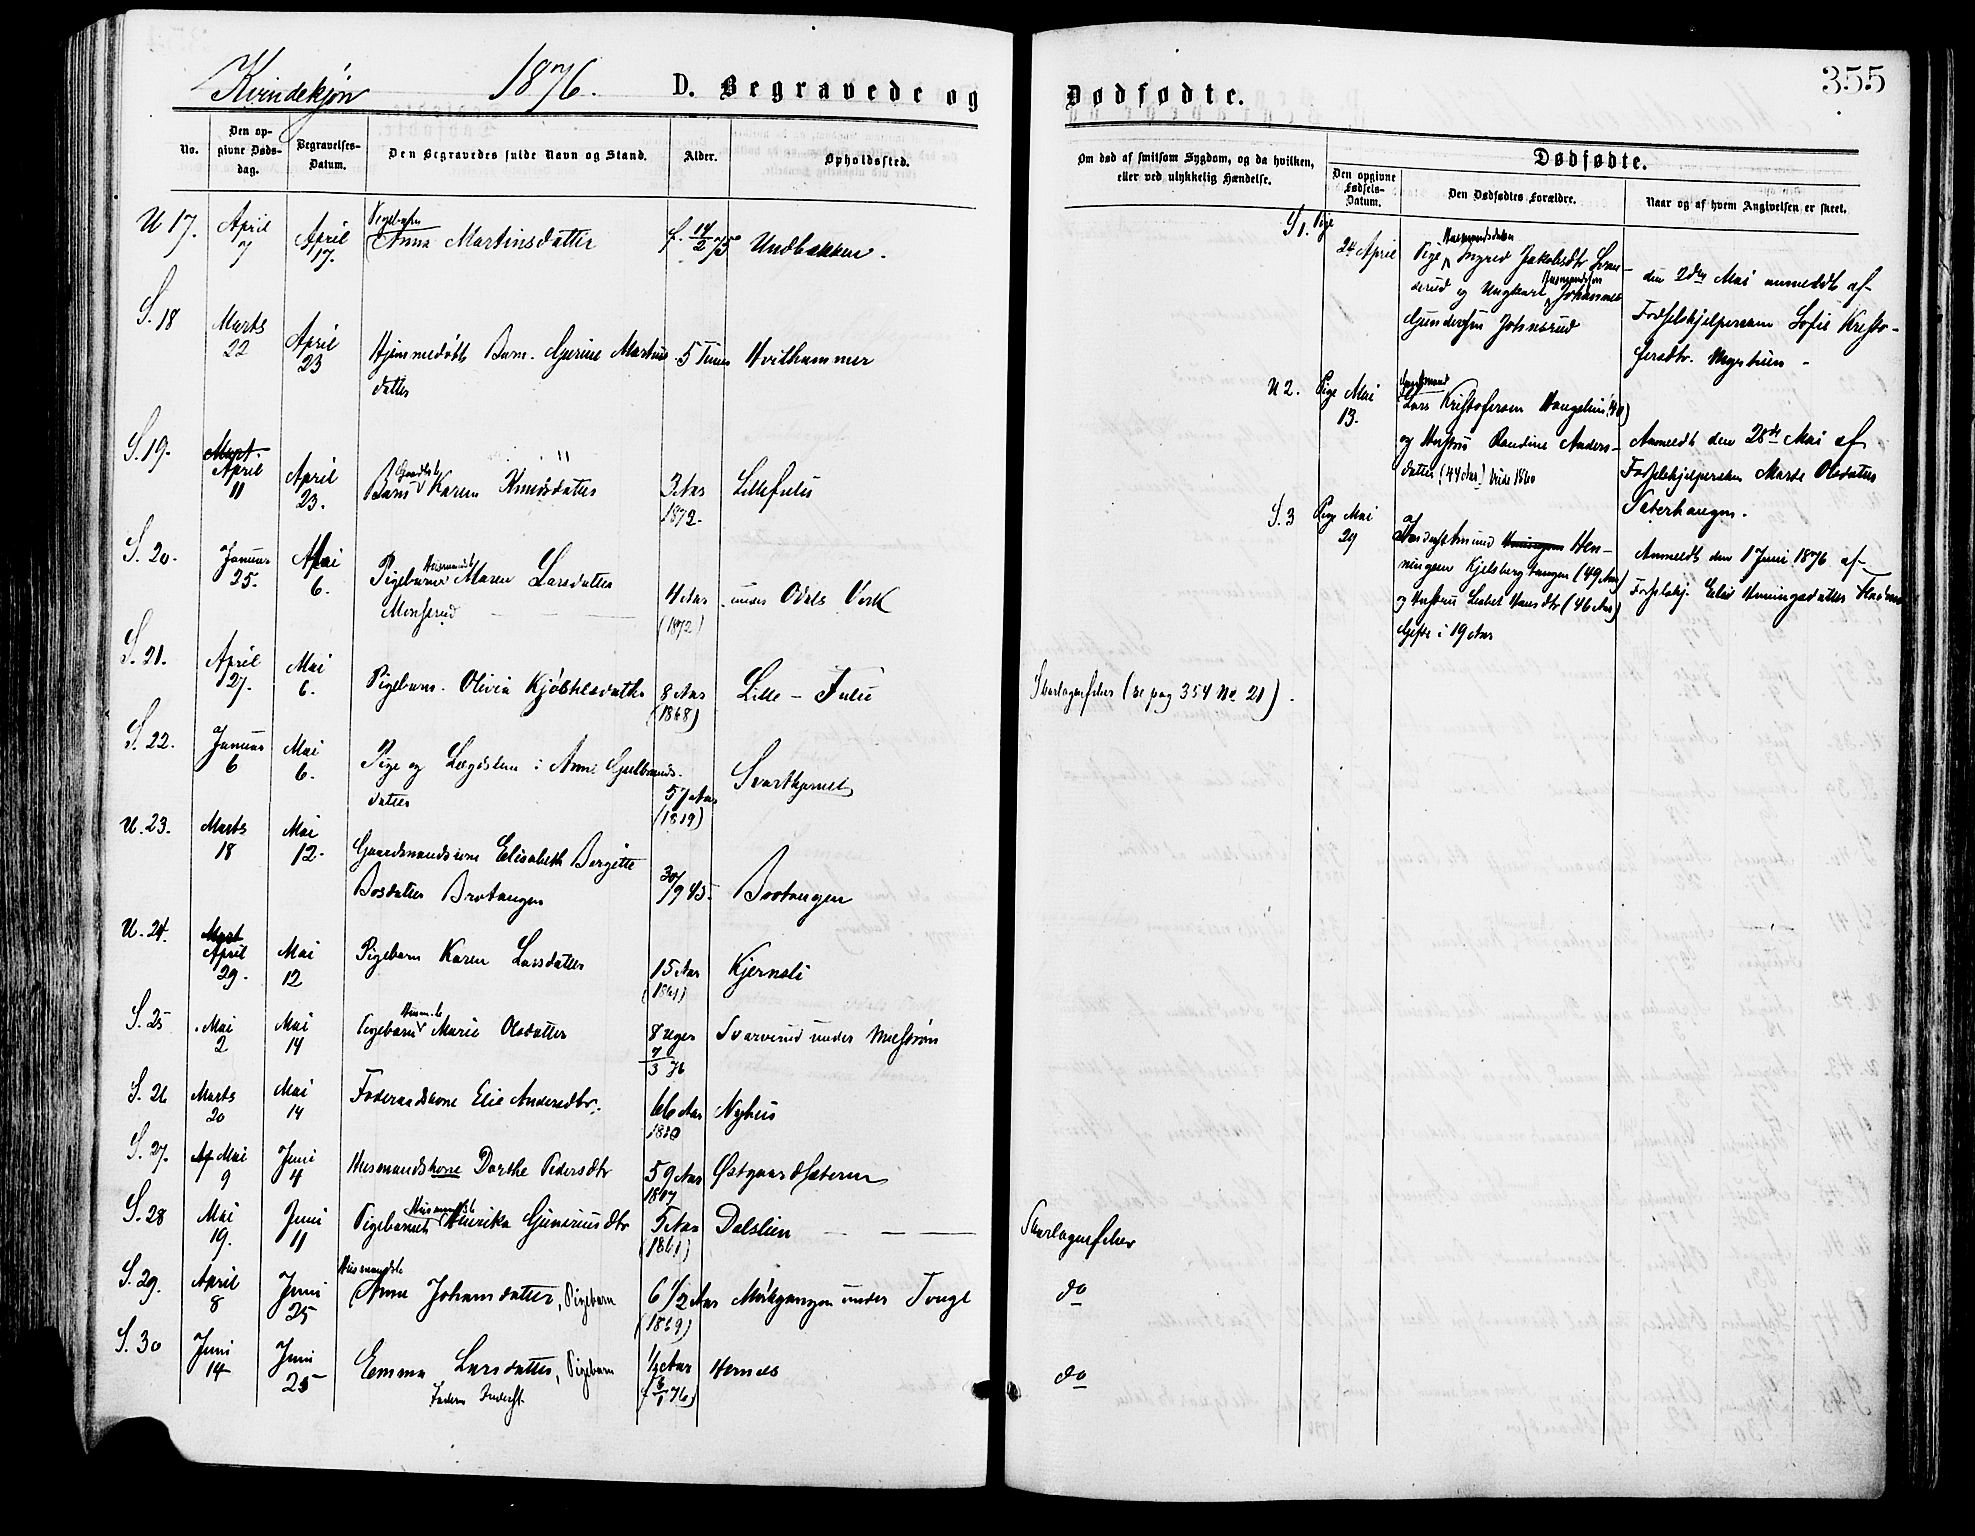 Kvindekjøn 1876. D. Begravede og Dødfødte. 355
No.
Den opgivne Dødsdag.
Begravelses-Datum.
Den Begravedes fulde Navn og Stand.
Alder.
Opholdssted.
Om død af smitsom Sygdom, og da hvilken,
eller ved ulykkelig Hændelse.
Dødfødte.
Den opgivne Fødsels-Datum.
Den Dødfødtes Forældre.
Naar og af hvem Angivelsen er skeet.
U 17. April 7 April 17. Pigebarn Anna Martinsdatter f. 14/2 75 Undbakken.
S. 18 Marts 22 April 23 Hjemmedøbt Barn. Gjerine Martins 5 Timer Hvithammer
datter
S. 19. Mart. April 11 April 23. Barn Karen Knudsdatter 3 Aar Lillefulu
1872.
S. 20. Januar 25. Mai 6. Pigebarn Maren Larsdatter
Monserud 4 Aar under Odals Verk
(1872)
S. 21. April 27. Mai 6. Pigebarn. Olivia Kjøstelsdatter 8 Aar Lille-Fulu Skarlagensfeber (se pag 354 No 21).
(1868)
S. 22. Januar 6 Mai 6. Pige og Lægdslem : Anne Gulbrands-
datter 57 Aar Svartkjernet
(1819)
U. 23. Marts 18 Mai 12. Gaardmandskone Elisabeth Bergitte
Bosdatter Brotangen 30/9 45. Brotangen
U. 24. Mart April 29. Mai 12 Pigebarn Karen Larsdatter 15 Aar Kjernsli
(1861)
S. 25 Mai 2 Mai 14 Pigebarn Marie Olsdatter 8 Uger Svarverud under
7/3 76
S. 26 Marts 20 Mai 14 Føderaadskone Elie Andersdtr. 66 Aar Nyhus
1810
S. 27. Ap Mai 9 Juni 4 Husmandskone Dorthe Pedersdtr 59 Aar Østgaardsæteren
1817
S. 28 Mai 19. Juni 11 Pigebarnet Husmandsb. Henrika Gunariusdtr 5 Aar Dalslien Skarlagensfeber
(1861)
S. 29. April 8 Juni 25 Husmandsb Anne Johansdatter, Pigebarn 6 1/2 Aar under Tonge do
(1869)
S. 30 Juni 14 Juni 25 Emma Larsdatter, Pigebarn 1/2 Aar Hernes do
Faderen Inderst (f 6/1 76)
S 1. Pige 24 April Pige Husmandsdatter Ingrid Jakobsdtr
og Ungkarl Husmandssøn Johannes
Gundersen Johnsrud
den 2den Mai anmeldt af
Fødselshjelpersken Sofie Kristo-
fersdtr. Myrstuen -
U 2. Pige Mai 13. Gaardmand
Lars Kristofersen
og Hustru Randine Anders-
datter (44 Aar) viede 1860
Anmeldt den 28de Mai af
Fødselshjelpersken Marte Olsdatter
Sæterhaugen.
S. 3 Pige Mai 29 af Hen-
ningsen Kjelsbergtangen (49 Aar)
og Hustru Lisbet Hansdtr (46 Aar)
Gifte i 19 Aar
Anmeldt den 1 Juni 1876 af
Fødselshj. Elie Henningsdatter